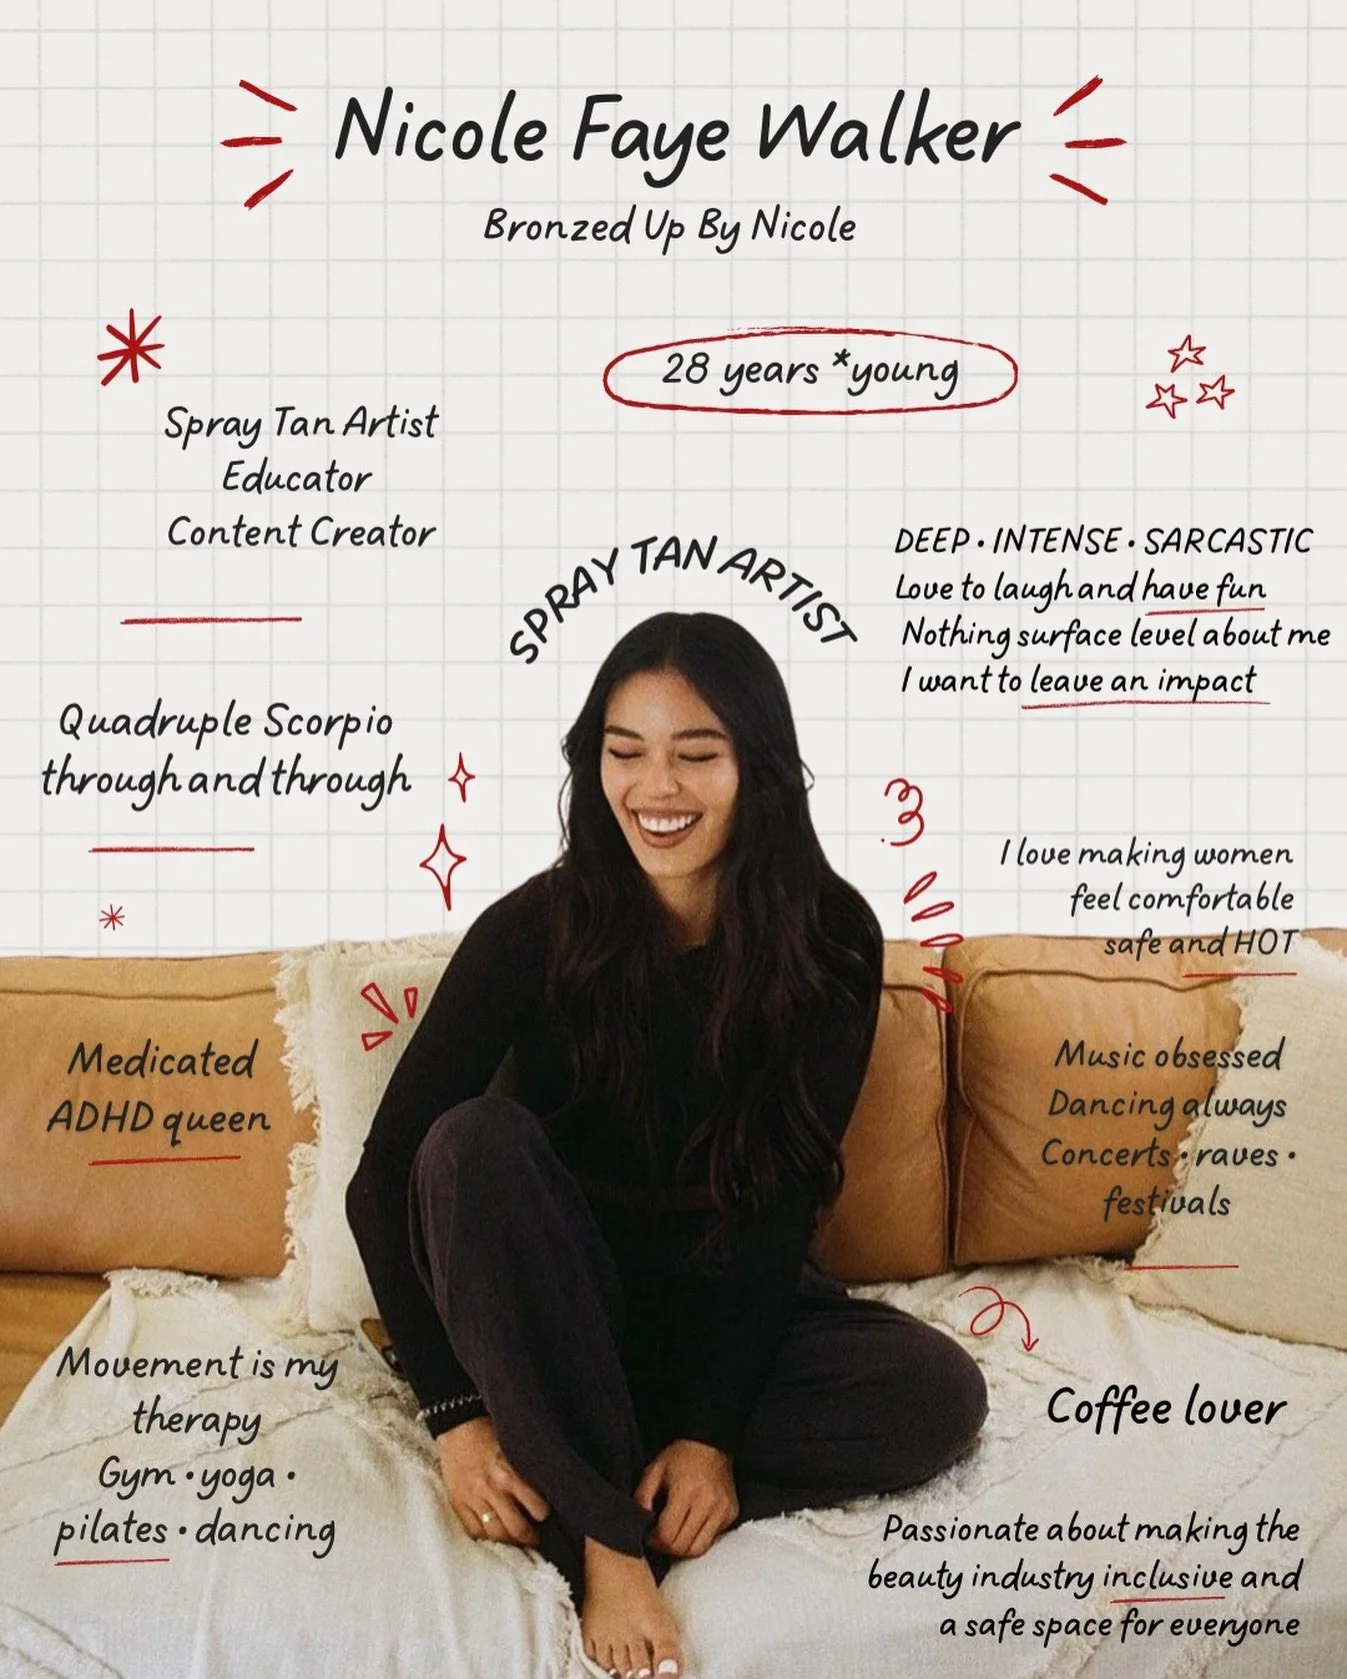 Nicole Faye Walker
Bronzed Up By Nicole
28 years *young
Spray Tan Artist
Educator
Content Creator
SPRAY TAN ARTIST
DEEP • INTENSE • SARCASTIC
Love to laugh and have fun
Nothing surface level about me
I want to leave an impact
Quadruple Scorpio
through and through
I love making women
feel comfortable
safe and HOT
Medicated
ADHD queen
Music obsessed
Dancing always
Concerts • raves •
festivals
Movement is my
therapy
Gym • yoga •
pilates • dancing
Coffee lover
Passionate about making the
beauty industry inclusive and
a safe space for everyone